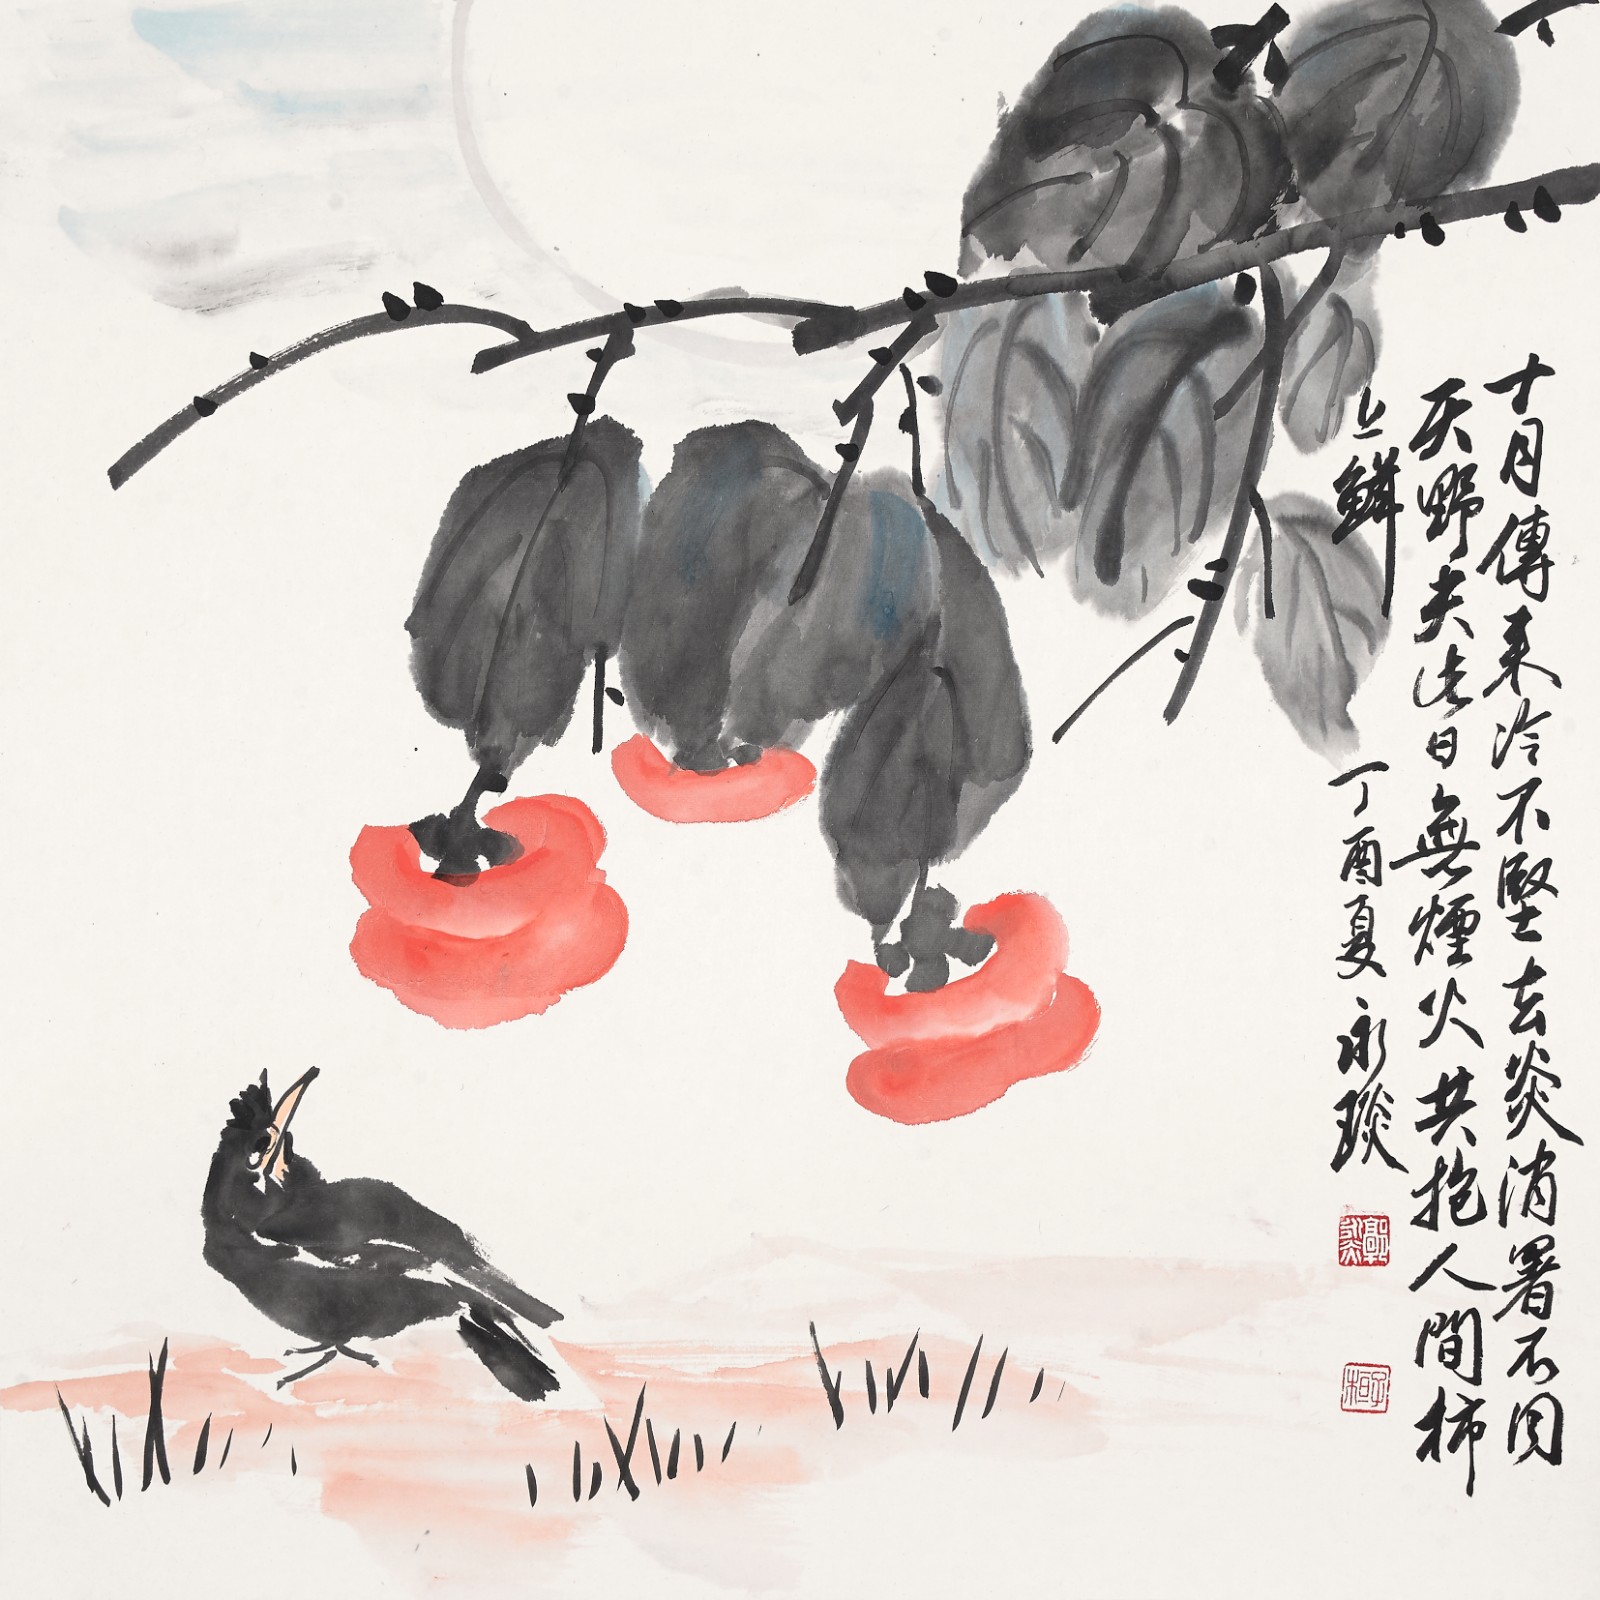 十月傳来冷不堅去炎消署不同
天野夫日無煙火共抱人間柿
上鮮 丁酉夏永琰